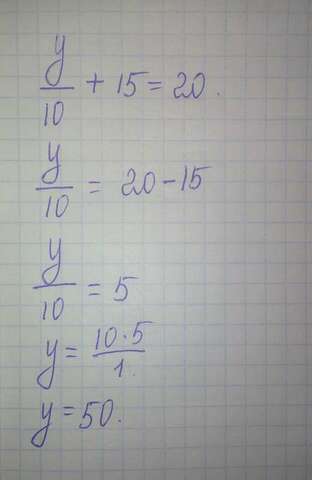 y/10 + 15 = 20.
y/10 = 20 - 15
y/10 = 5
y = 10·5/1.
y = 50.